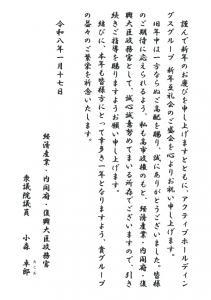 謹んで新年のお慶びを申し上げますとともに、アクティブホールディン
グスグループ 新年互礼会のご盛会を心よりお祝い申し上げます。
旧年中は一方ならぬご高配を賜り、誠にありがとうございました。皆様
のご期待に応えられるよう、私も高市政権のもと、経済産業・内閣府・復
興大臣政務官として、誠心誠意努めてまいる所存でございますので、引き
続きご指導を賜りますようお願い申し上げます。
結びに、本年も皆様方にとって幸多き一年となりますよう、貴グループ
の益々のご繁栄を祈念いたします。
令和八年一月十七日
経済産業・内閣府・復興大臣政務官
衆議院議員 小森 卓郎